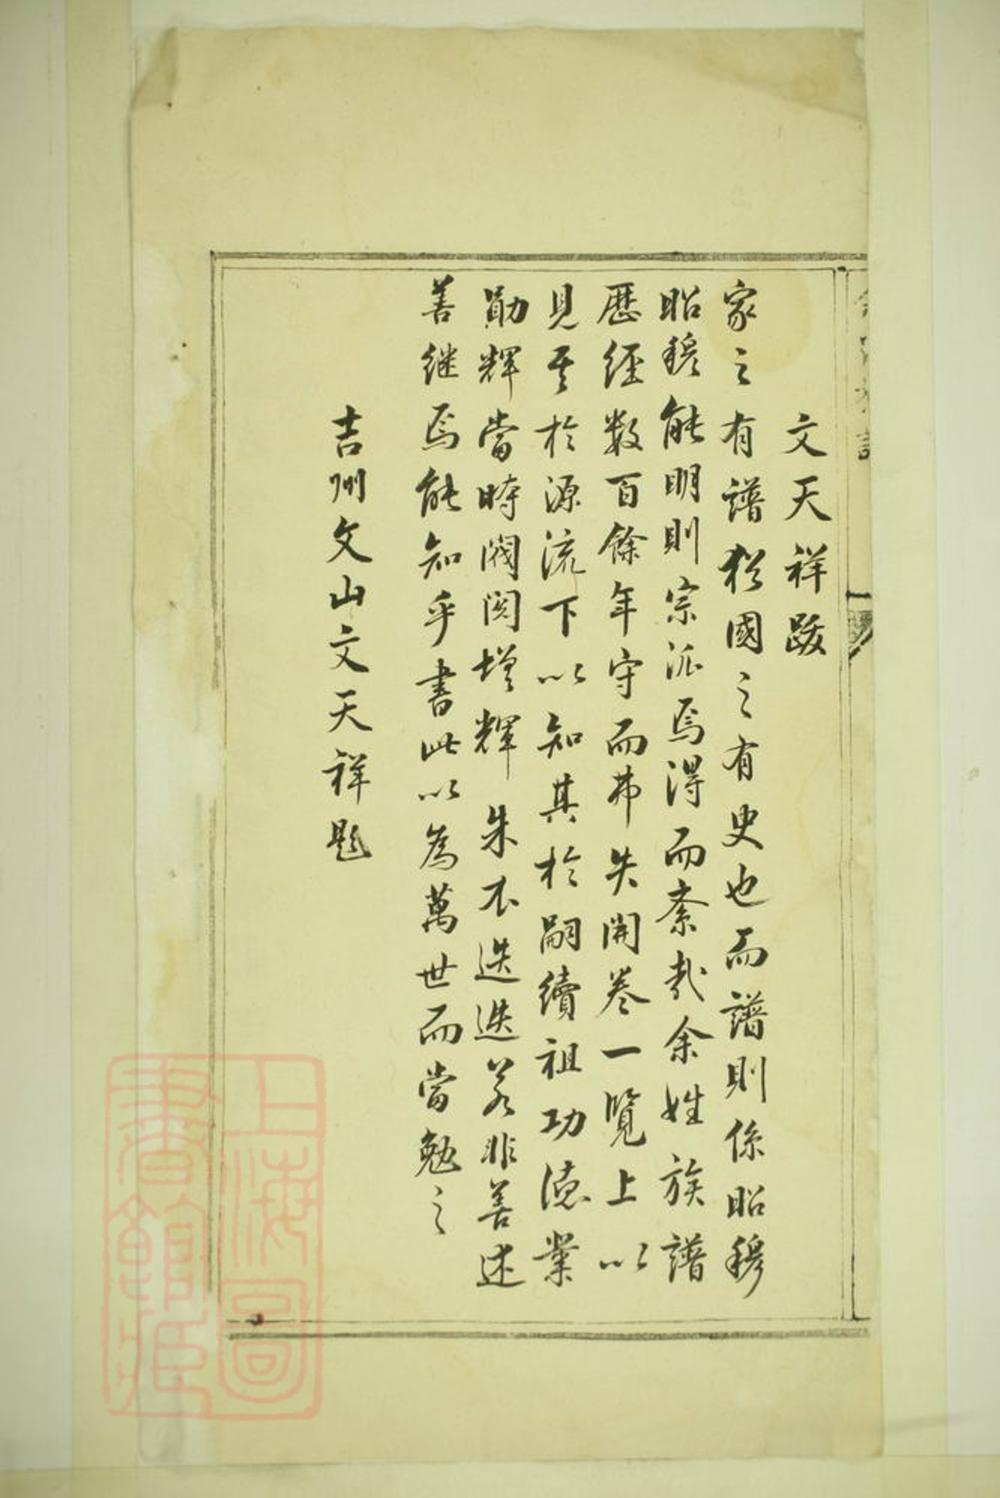 文天祥跋
家之有譜猶國之有史也而譜則係昭穆
昭穆能明則宗派焉得而紊哉余姓族譜
歷經数百餘年守而弗失開卷一覽上以
見其於源流下以知其於嗣續祖功德業
勛輝當時閥閱增輝朱衣迭迭若非善述
善继焉能知乎書此以為萬世而當勉之
吉州文山文天祥題
上海圖
書館藏